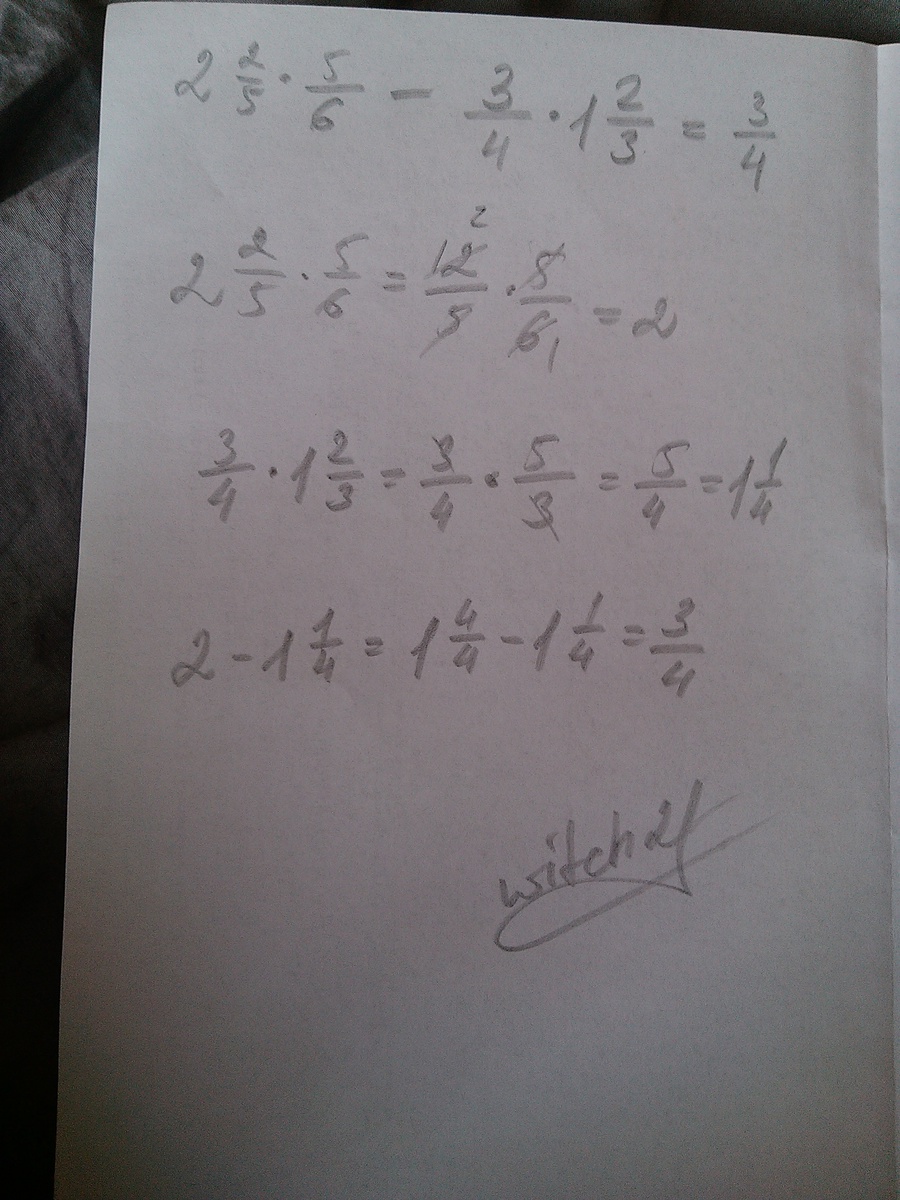 2 2/5 · 5/6 − 3/4 · 1 2/3 = 3/4
2 2/5 · 5/6 = 12/5 · 5/6 = 2
3/4 · 1 2/3 = 3/4 · 5/3 = 5/4 = 1 1/4
2 − 1 1/4 = 1 4/4 − 1 1/4 = 3/4
witch21